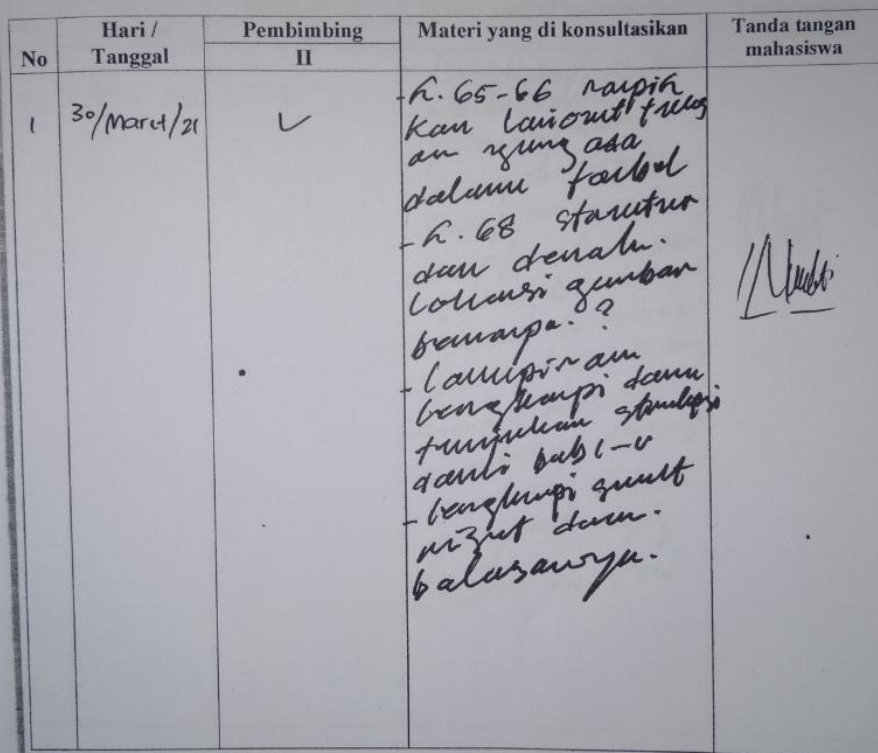 No
Hari / Tanggal
Pembimbing
II
Materi yang di konsultasikan
Tanda tangan mahasiswa
1
30/Maret/21
✓
- h. 65-66 rapih
kan layout
an yang ada
dalam tabel
- h. 68 struktur
dan denah.
Lokasi gambar
berapa. ?
- Lampiran
lengkapi dan
tunjukan
dari bab 1-V
- lengkapi surat
dan.
balasannya.